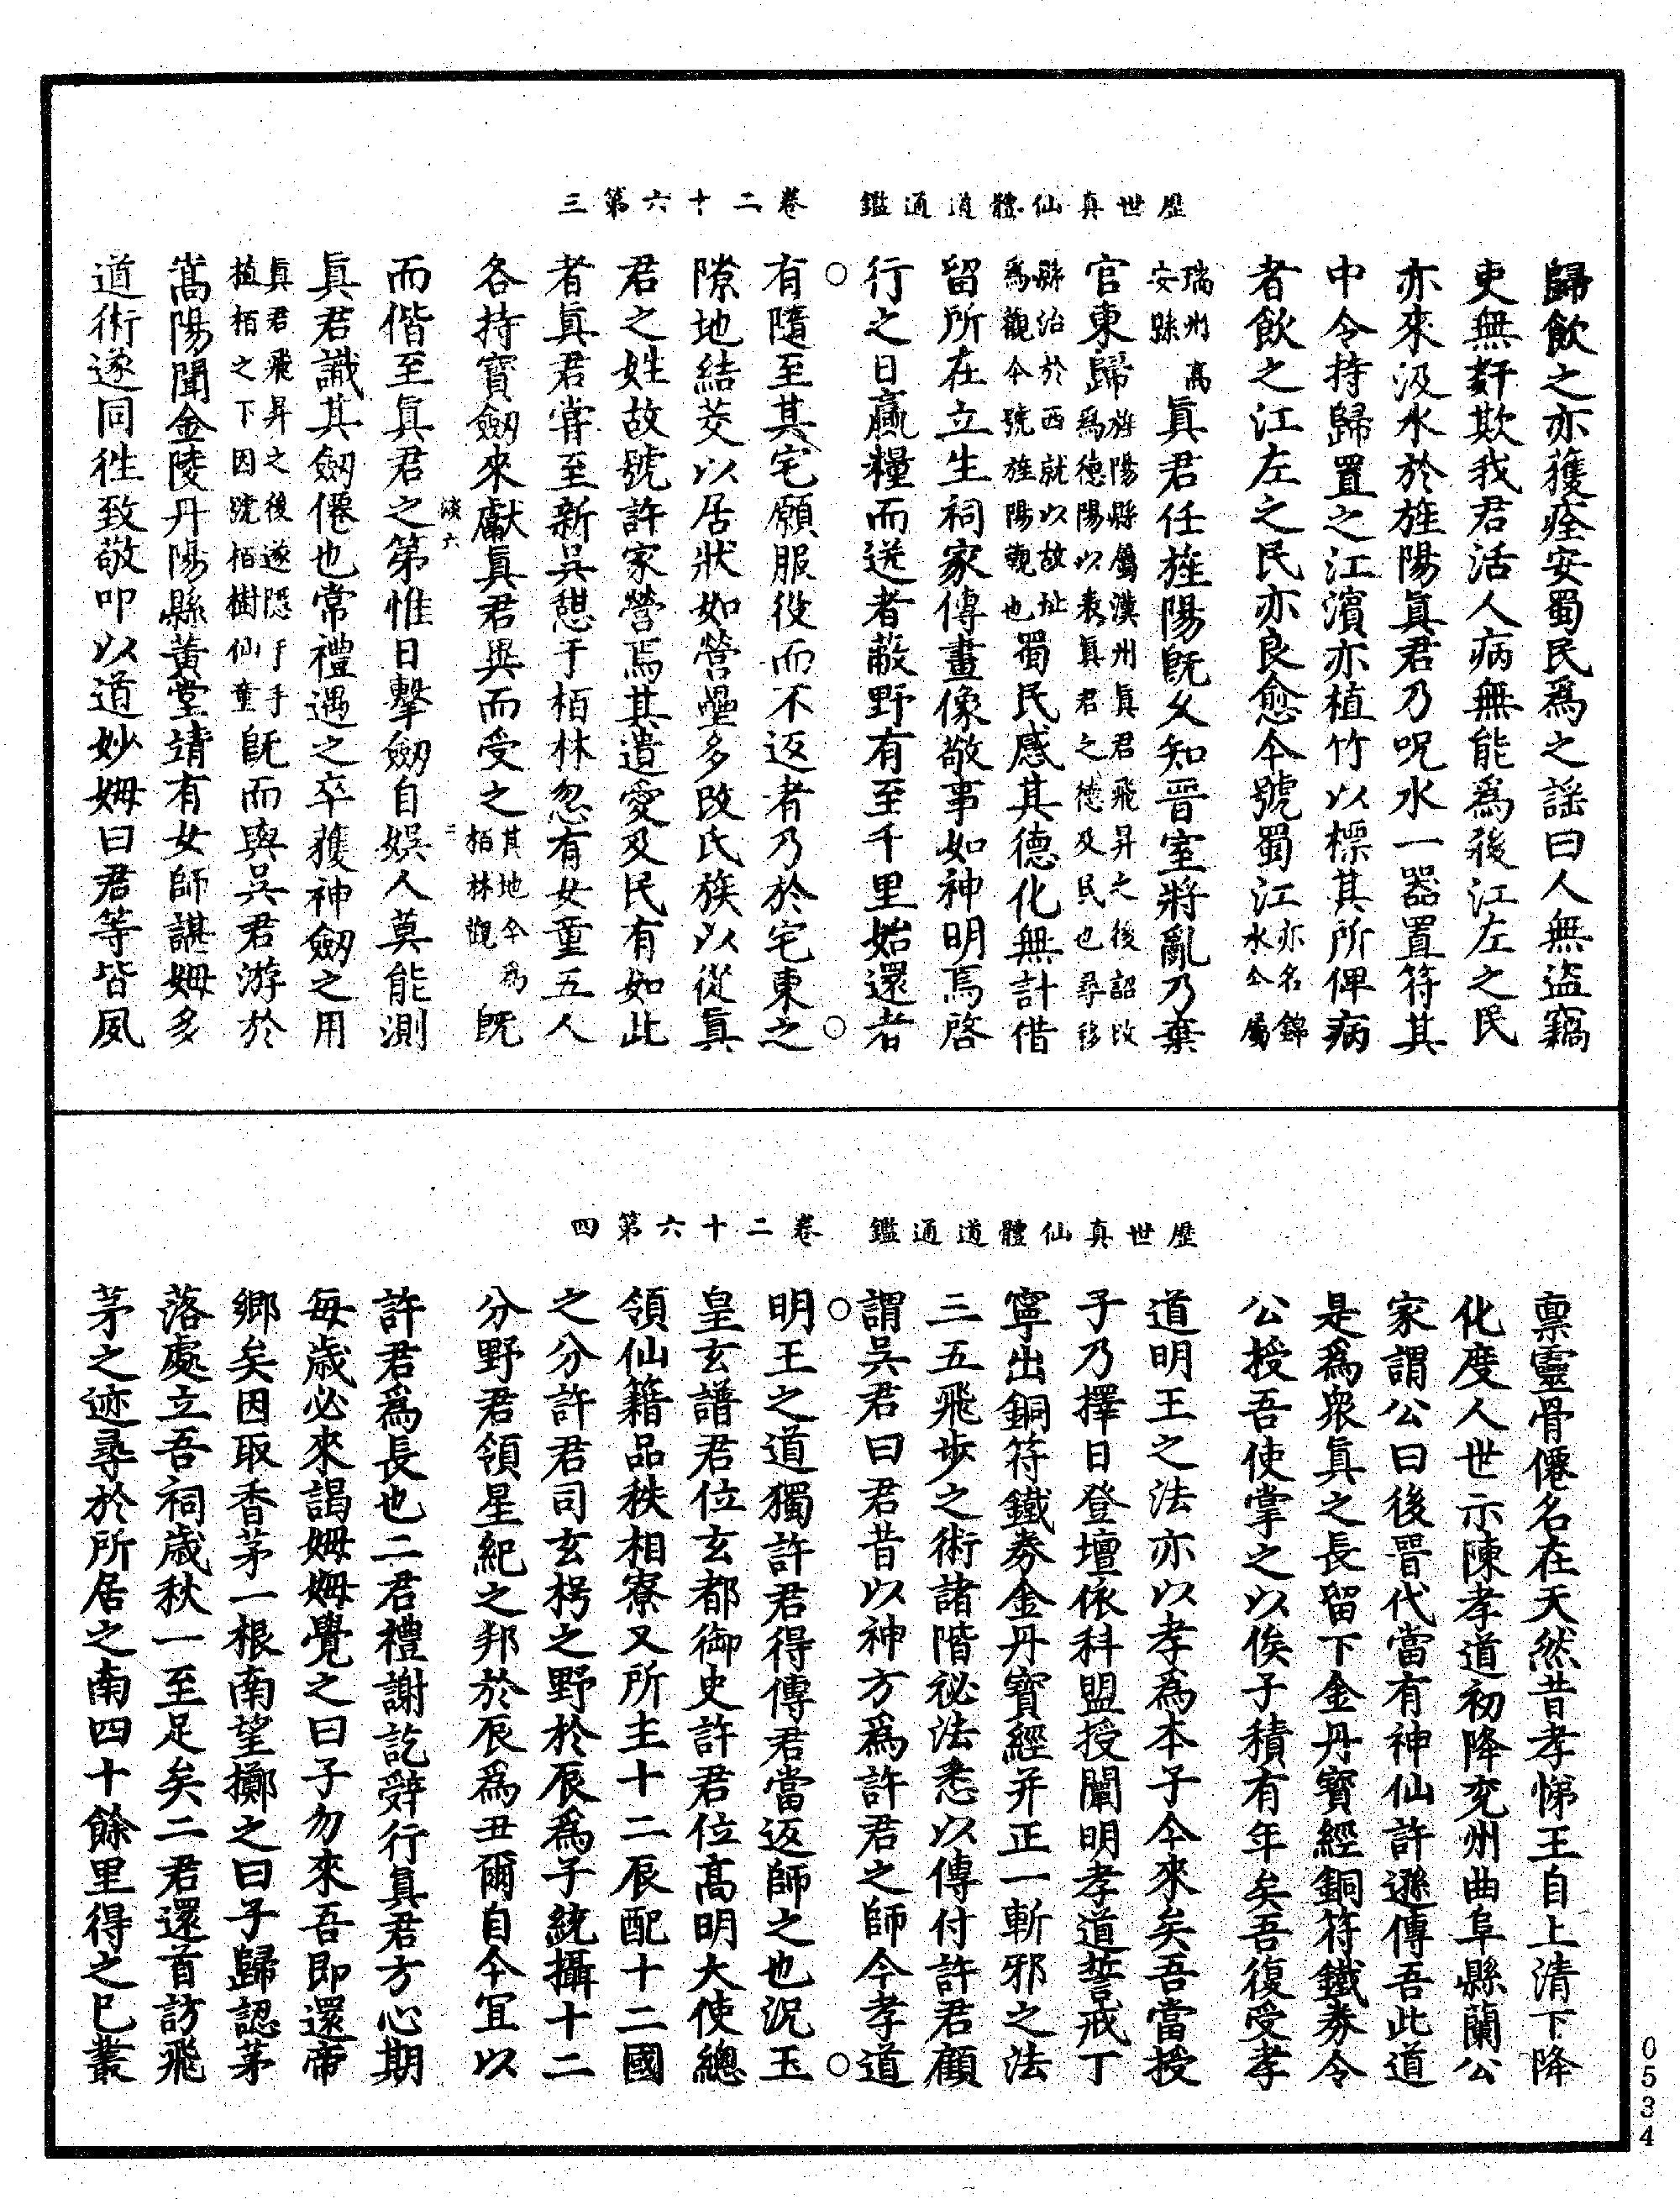 歷世真仙體道通鑑　卷二十六第三
歸飲之亦獲痊安蜀民為之謠曰人無盜竊
吏無姧欺我君活人病無能為後江左之民
亦來汲水於旌陽真君乃呪水一器置符其
中令持歸置之江濱亦植竹以標其所俾病
者飲之江左之民亦良愈今號蜀江亦名錦水今屬
瑞州高安縣真君任旌陽既久知晉室將亂乃棄
官東歸旌陽縣屬漢州真君飛昇之後詔改為德陽以表真君之德及民也尋移
縣治於西就以故址為觀今號旌陽觀也蜀民感其德化無計借
留所在立生祠家傳畫像敬事如神明焉啓
行之日贏糧而送者蔽野有至千里始還者
有隨至其宅願服役而不返者乃於宅東之
隙地結茭以居狀如營壘多改氏族以從真
君之姓故號許家營焉其遺愛及民有如此
者真君嘗至新吳憩于栢林忽有女童五人
各持寶劔來獻真君異而受之其地今為栢林觀既
淡六
二
而偕至真君之第惟日擊劔自娛人莫能測
真君識其劔僊也常禮遇之卒獲神劔之用
真君飛昇之後遂隱于手植栢之下因號栢樹仙童既而與吳君游於
嵩陽聞金陵丹陽縣黃堂靖有女師諶姆多
道術遂同徃致敬叩以道妙姆曰君等皆夙
歷世真仙體道通鑑　卷二十六第四
禀靈骨僊名在天然昔孝悌王自上清下降
化度人世示陳孝道初降兖州曲阜縣蘭公
家謂公曰後晉代當有神仙許遜傳吾此道
是為衆真之長留下金丹寶經銅符鐵券令
公授吾使掌之以俟子積有年矣吾復受孝
道明王之法亦以孝為本子今來矣吾當授
子乃擇日登壇依科盟授闡明孝道誓戒丁
寧出銅符鐵券金丹寶經并正一斬邪之法
三五飛步之術諸階祕法悉以傳付許君顧
謂吳君曰君昔以神方為許君之師今孝道
明王之道獨許君得傳君當返師之也況玉
皇玄譜君位玄都御史許君位高明大使總
領仙籍品秩相寮又所主十二辰配十二國
之分許君司玄枵之野於辰為子統攝十二
分野君領星紀之邦於辰為丑爾自今宜以
許君為長也二君禮謝訖辭行真君方心期
每歲必來謁姆姆覺之曰子勿來吾即還帝
鄉矣因取香茅一根南望擲之曰子歸認茅
落處立吾祠歲秋一至足矣二君還首訪飛
茅之迹尋於所居之南四十餘里得之已叢
0534